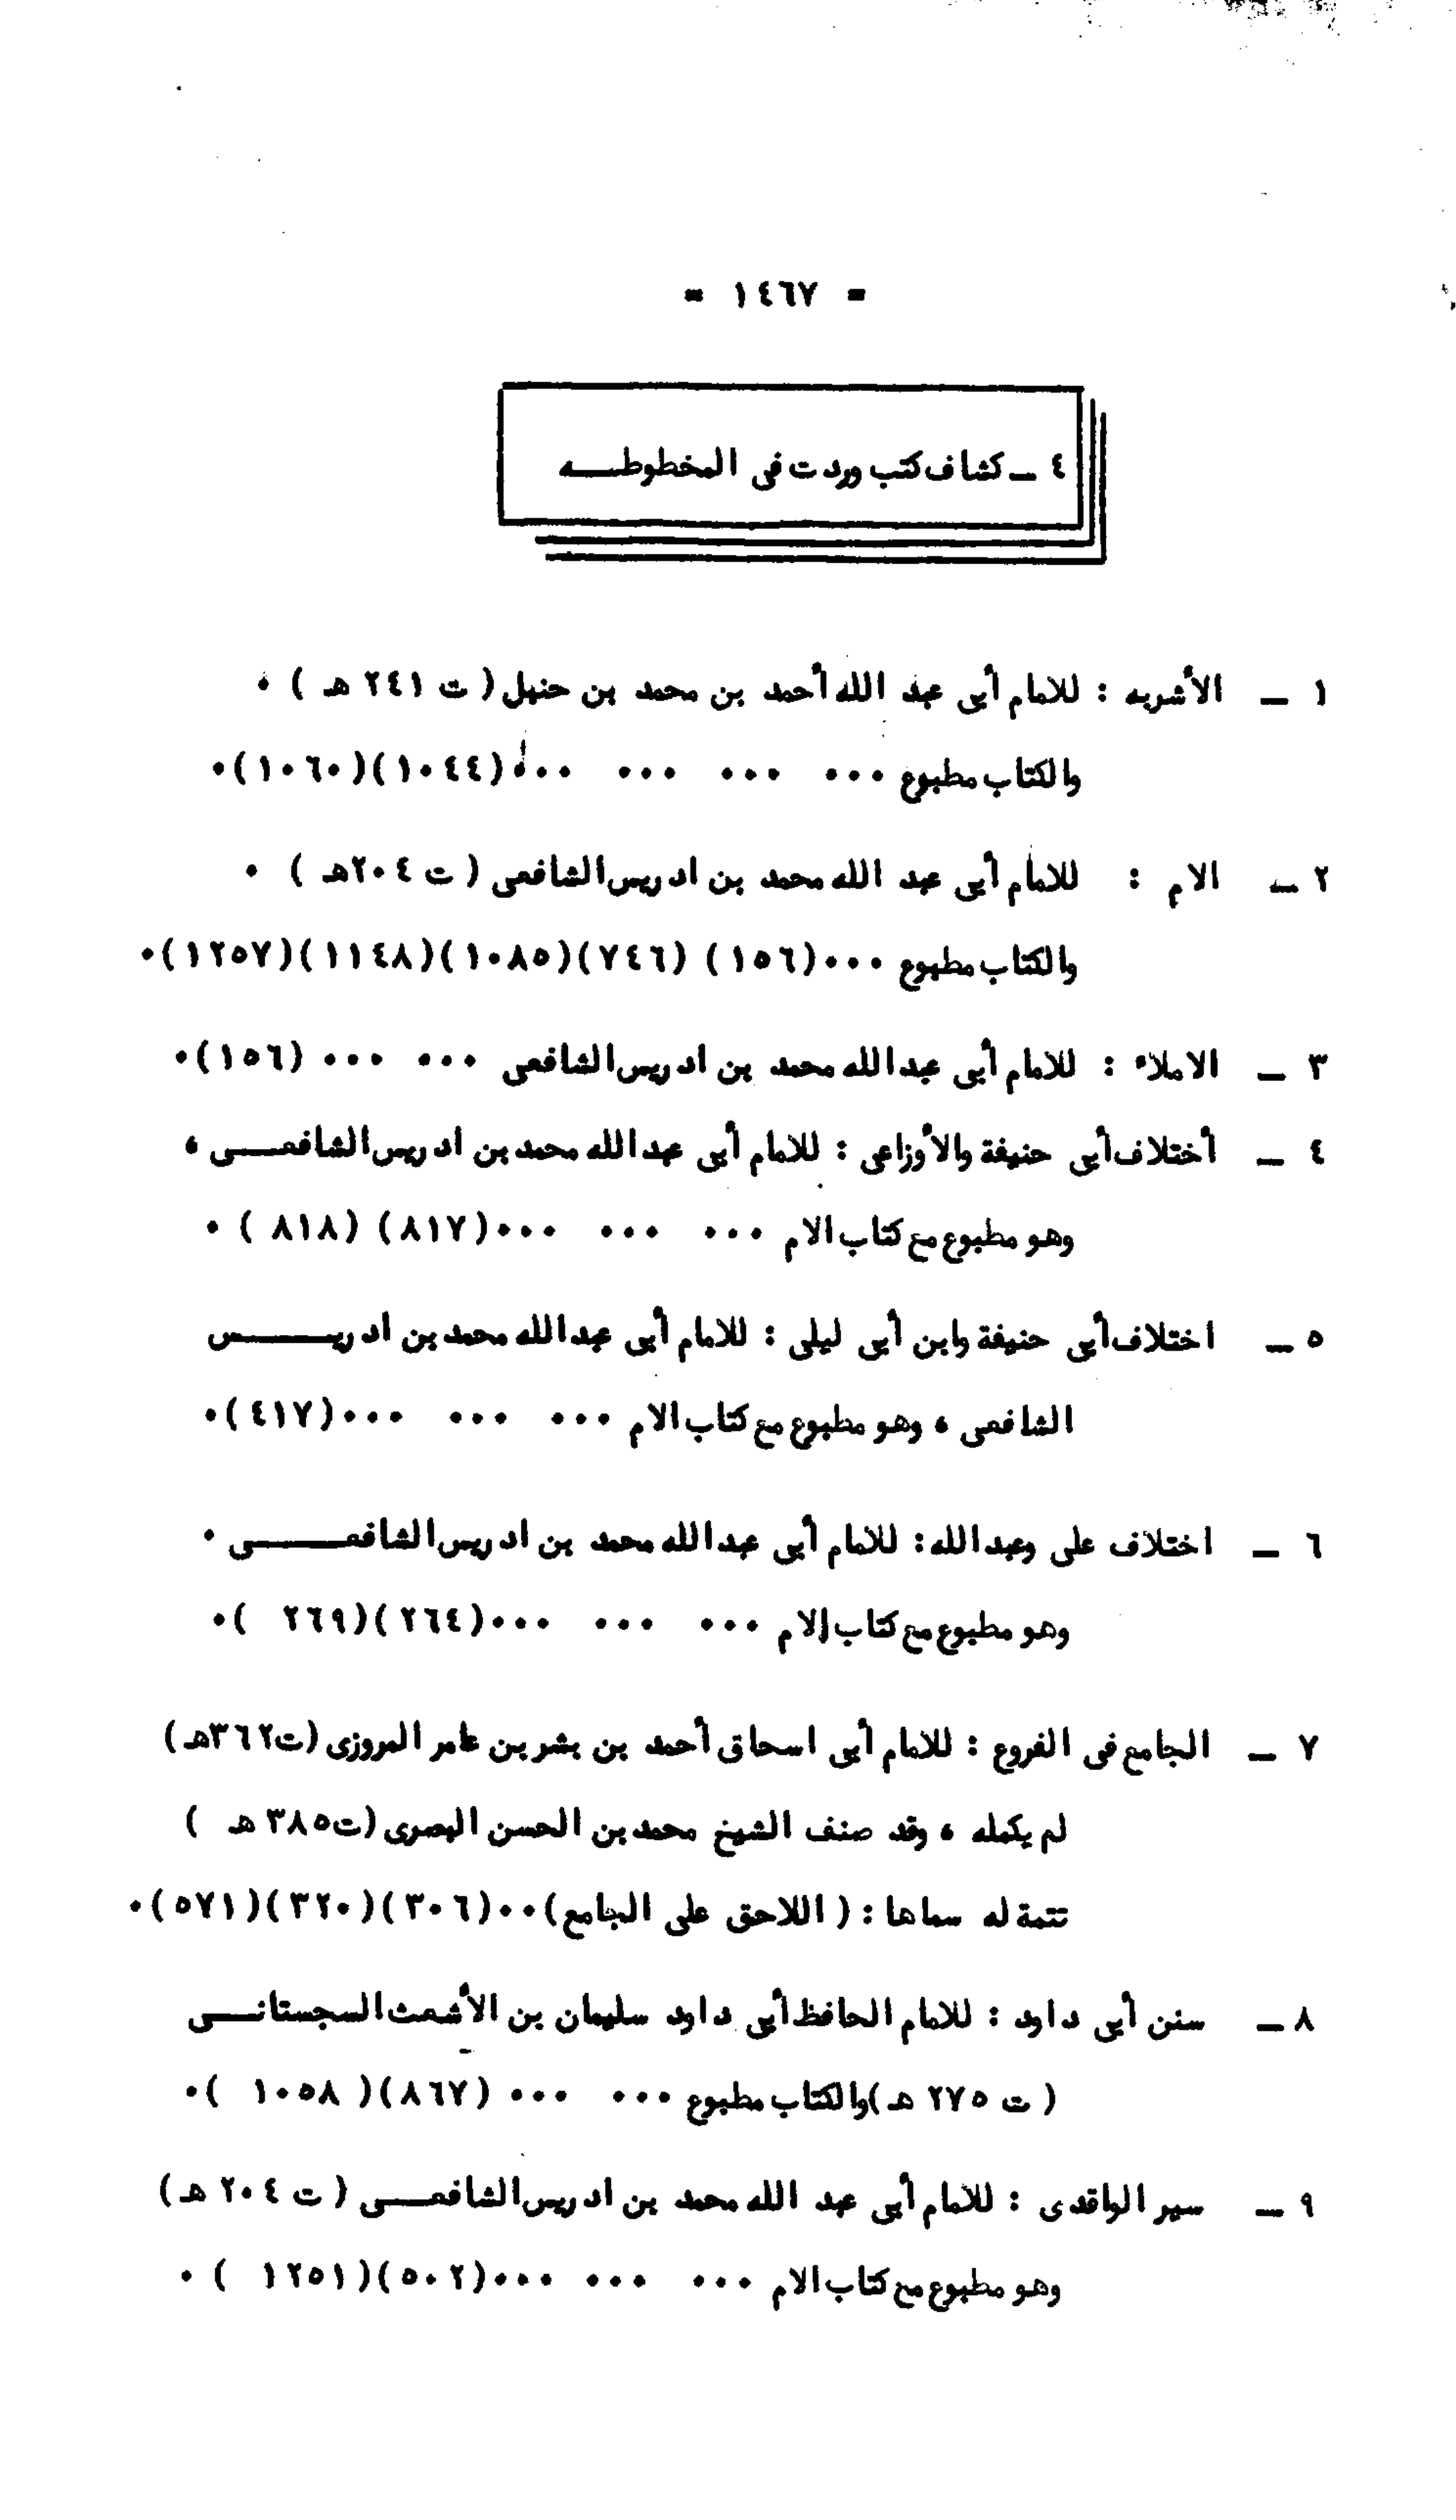 = ١٤٦٧ =
٤ ــ كشاف كتب وردت فى المخطوطـــه
١ ــ الأشربه : للامام أبى عبد الله أحمد بن محمد بن حنبل ( ت ٢٤١ هـ ) ٠
والكتاب مطبوع ٠٠٠ ٠٠٠ ٠٠٠ ٠٠٠(١٠٤٤)(١٠٦٠)٠
٢ ــ الام : للامام أبى عبد الله محمد بن ادريس الشافعى ( ت ٢٠٤هـ ) ٠
والكتاب مطبوع ٠٠٠(١٥٦) (٧٤٦)(١٠٨٥)(١١٤٨)(١٢٥٧)٠
٣ ــ الاملاء : للامام أبى عبدالله محمد بن ادريس الشافعى ٠٠٠ ٠٠٠ (١٥٦)٠
٤ ــ أختلاف أبى حنيفة والأوزاعى : للامام أبى عبدالله محمد بن ادريس الشافعـــى ،
وهو مطبوع مع كتاب الام ٠٠٠ ٠٠٠ ٠٠٠(٨١٧) (٨١٨ ) ٠
٥ ــ اختلاف أبى حنيفة وابن أبى ليلى : للامام أبى عبدالله محمد بن ادريـــــس
الشافعى ، وهو مطبوع مع كتاب الام ٠٠٠ ٠٠٠ ٠٠٠(٤١٧)٠
٦ ــ اختلاف على وعبدالله : للامام أبى عبدالله محمد بن ادريس الشافعـــــى ٠
وهو مطبوع مع كتاب الام ٠٠٠ ٠٠٠ ٠٠٠(٢٦٤)(٢٦٩ )٠
٧ ــ الجامع فى الفروع : للامام أبى اسحاق أحمد بن بشر بن عامر المروزى (ت٣٦٢هـ)
لم يكمله ، وقد صنف الشيخ محمد بن الحسن البصرى (ت٣٨٥ هـ )
تتمة له سماها : ( اللاحق على الجامع)٠٠(٣٠٦)(٣٢٠)(٥٧١)٠
٨ ــ سنن أبى داود : للامام الحافظ أبى داود سليمان بن الأشعث السجستانـــى
( ت ٢٧٥ هـ)والكتاب مطبوع ٠٠٠ ٠٠٠ (٨٦٧)( ١٠٥٨ )٠
٩ ــ سير الواقدى : للامام أبى عبد الله محمد بن ادريس الشافعـــى ( ت ٢٠٤ هـ)
وهو مطبوع مع كتاب الام ٠٠٠ ٠٠٠ ٠٠٠(٥٠٢)(١٢٥١ ) ٠